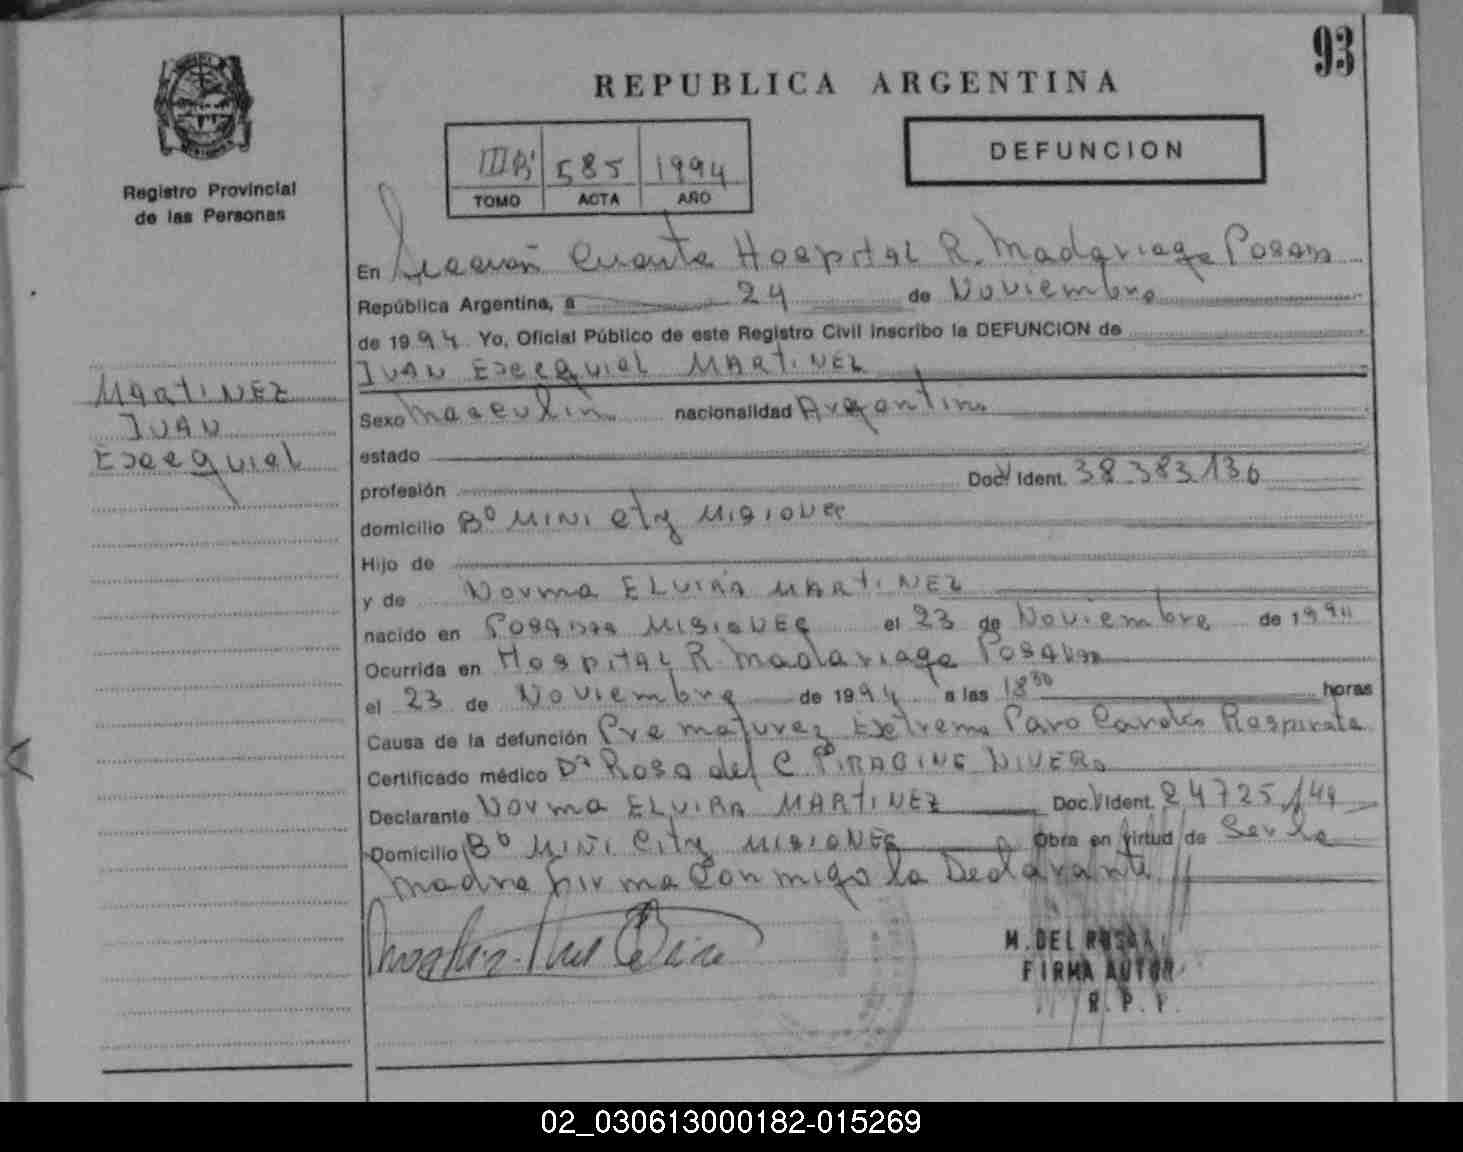 93
REPUBLICA ARGENTINA
Registro Provincial
de las Personas
585 1994
TOMO ACTA AÑO
DEFUNCION
En Sección Cuarta Hospital R. Madariaga Posadas
República Argentina, a 24 de Noviembre
de 1994 Yo, Oficial Público de este Registro Civil inscribo la DEFUNCION de
IVAN Esequiel MARTINEZ
MARTINEZ
IVAN
Esequiel
Sexo Masculino nacionalidad Argentina
estado
profesión Doc/ Ident. 38.383.136
domicilio Bº MINI City MISIONES
Hijo de
y de Norma ELVIRA MARTINEZ
nacido en Posadas MISIONES el 23 de Noviembre de 1994
Ocurrida en Hospital R. Madariaga Posadas
el 23 de Noviembre de 1994 a las 18 30 horas
Causa de la defunción Prematurez Extrema Paro Cardio Respirato
Certificado médico Dª Rosa del C.
Declarante Norma ELVIRA MARTINEZ Doc/ Ident. 24725144
Domicilio Bº MINI City MISIONES Obra en virtud de Ser la
madre Firma Conmigo la Declarante
M. DEL
FIRMA
R. P. P.
02_030613000182-015269